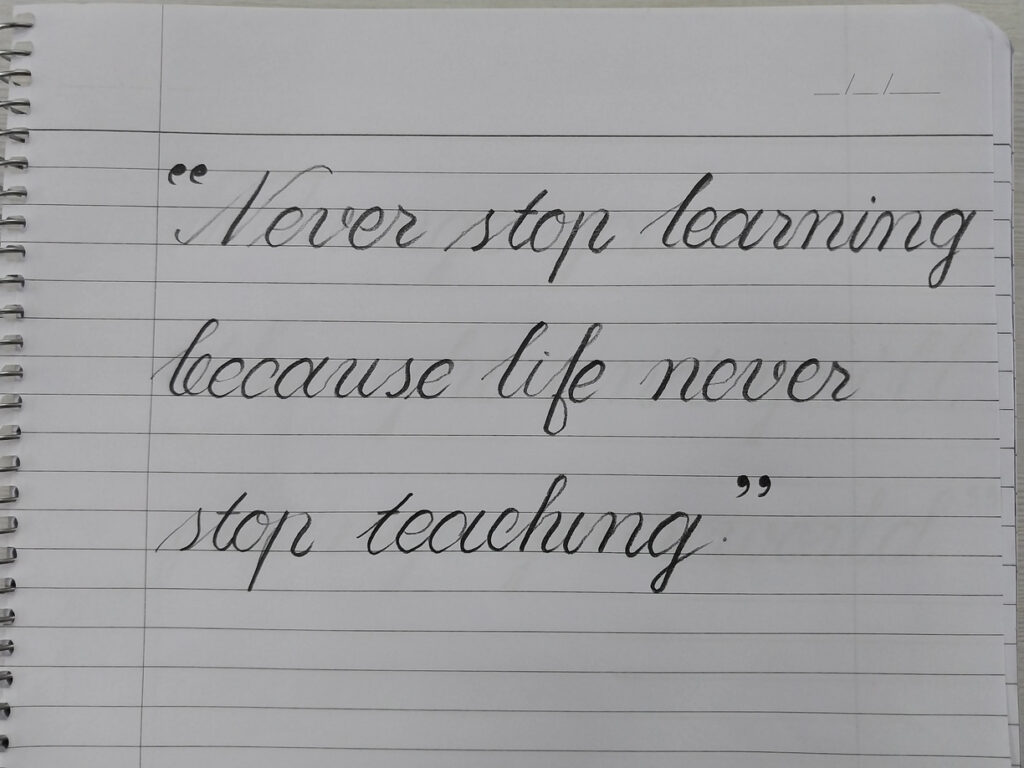 “Never stop learning
because life never
stop teaching.”